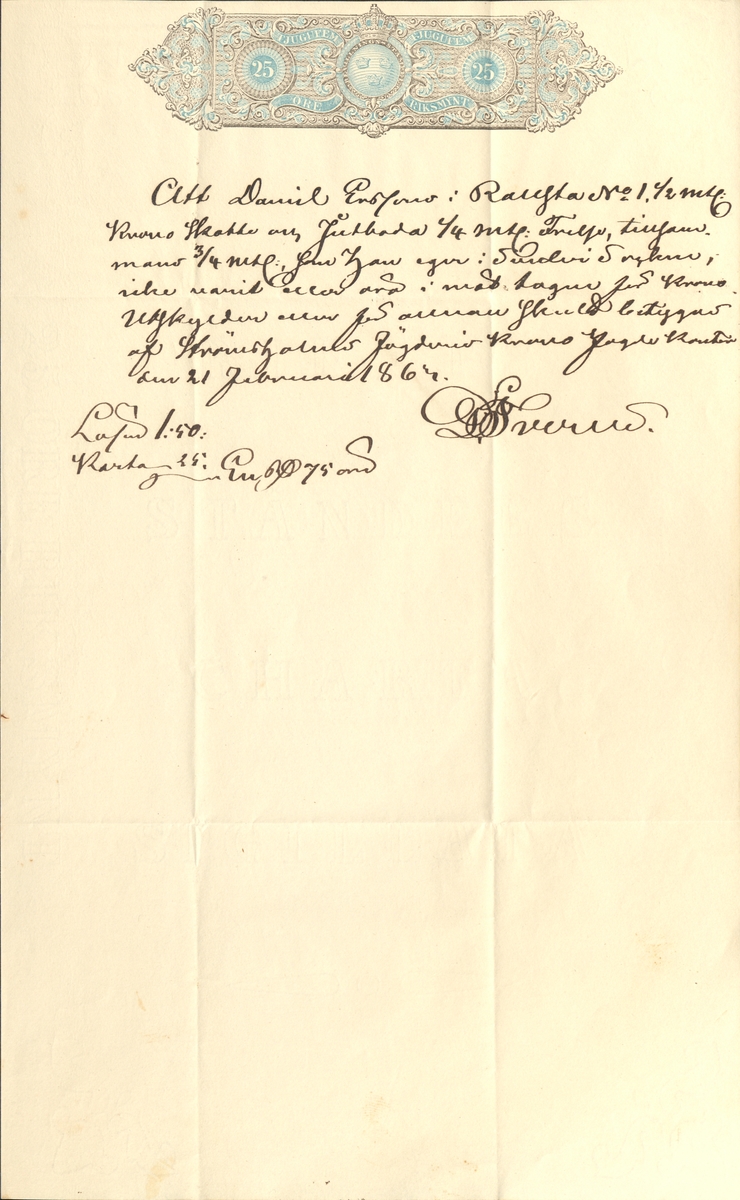 TJUGUFEM TJUGUFEM
25 25
ÖRE RIKSMYNT
Att Daniel Ersson i Rallsta No 1, 1/2 mtl:
Krono Skatte och Jutboda 1/4 mtl: Frelse, tillsam-
mans 3/4 mtl:, som han eger i Socken,
icke varit eller äro i mät tagne för Krono
Utskylder eller för annan Skuld betygas
af Strömsholms Fögderis Krono Fogde Kontor
den 21 Februari 1867.
Lösen 1:50:
Karta 25. En Rd 75 öre